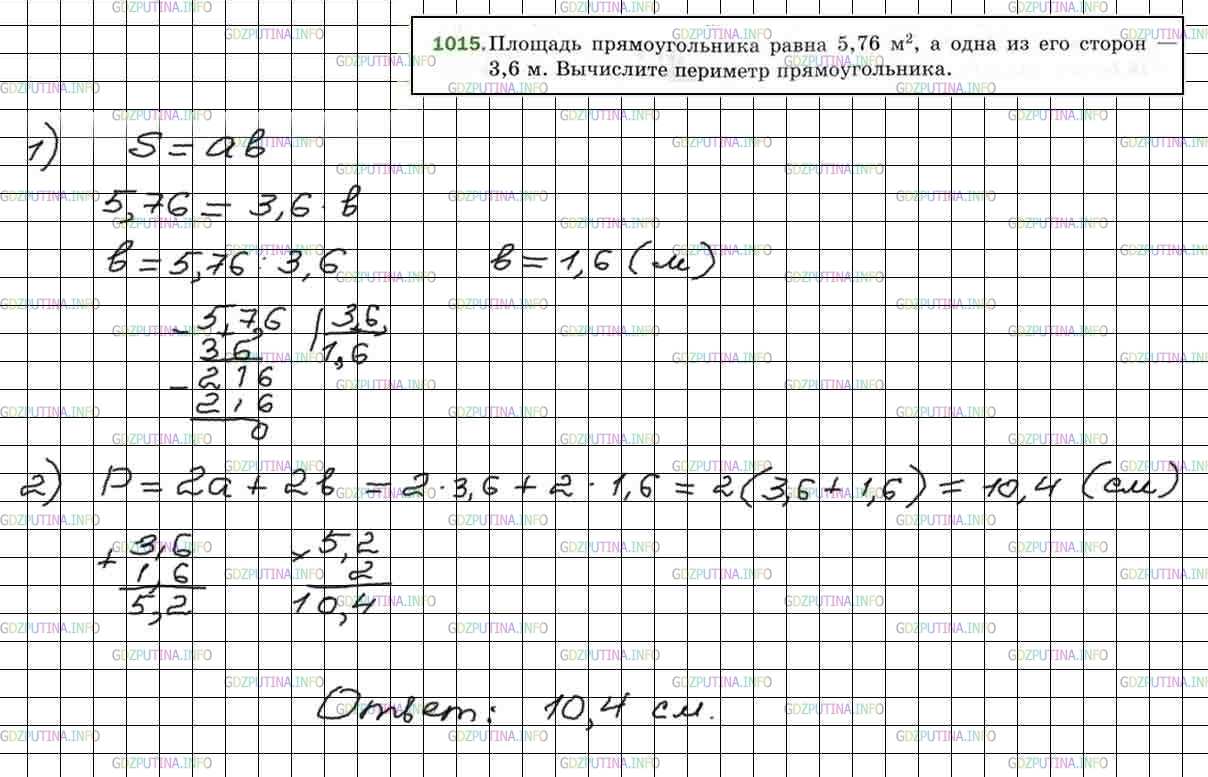 1015. Площадь прямоугольника равна 5,76 м², а одна из его сторон —
3,6 м. Вычислите периметр прямоугольника.
1) S = ab
5,76 = 3,6 · b
b = 5,76 : 3,6 b = 1,6 (м)
- 5,7,6 | 3,6,
3 6 1,6
- 2 1 6
2 1 6
0
2) P = 2a + 2b = 2 · 3,6 + 2 · 1,6 = 2(3,6 + 1,6) = 10,4 (см)
+ 3,6 × 5,2
1,6 2
5,2 10,4
Ответ: 10,4 см.
GDZPUTINA.INFO